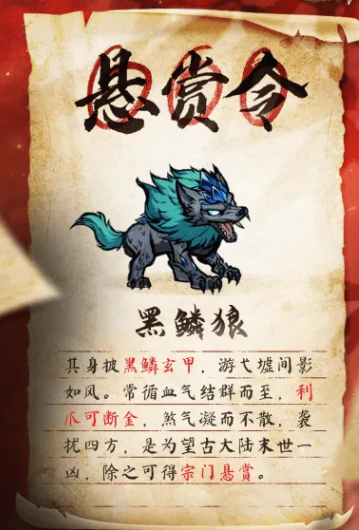 悬赏令
黑鳞狼
其身披黑鳞玄甲，游弋墟间影
如风。常循血气结群而至，利
爪可断金，煞气凝而不散，袭
扰四方，是为望古大陆末世一
凶，除之可得宗门悬赏。